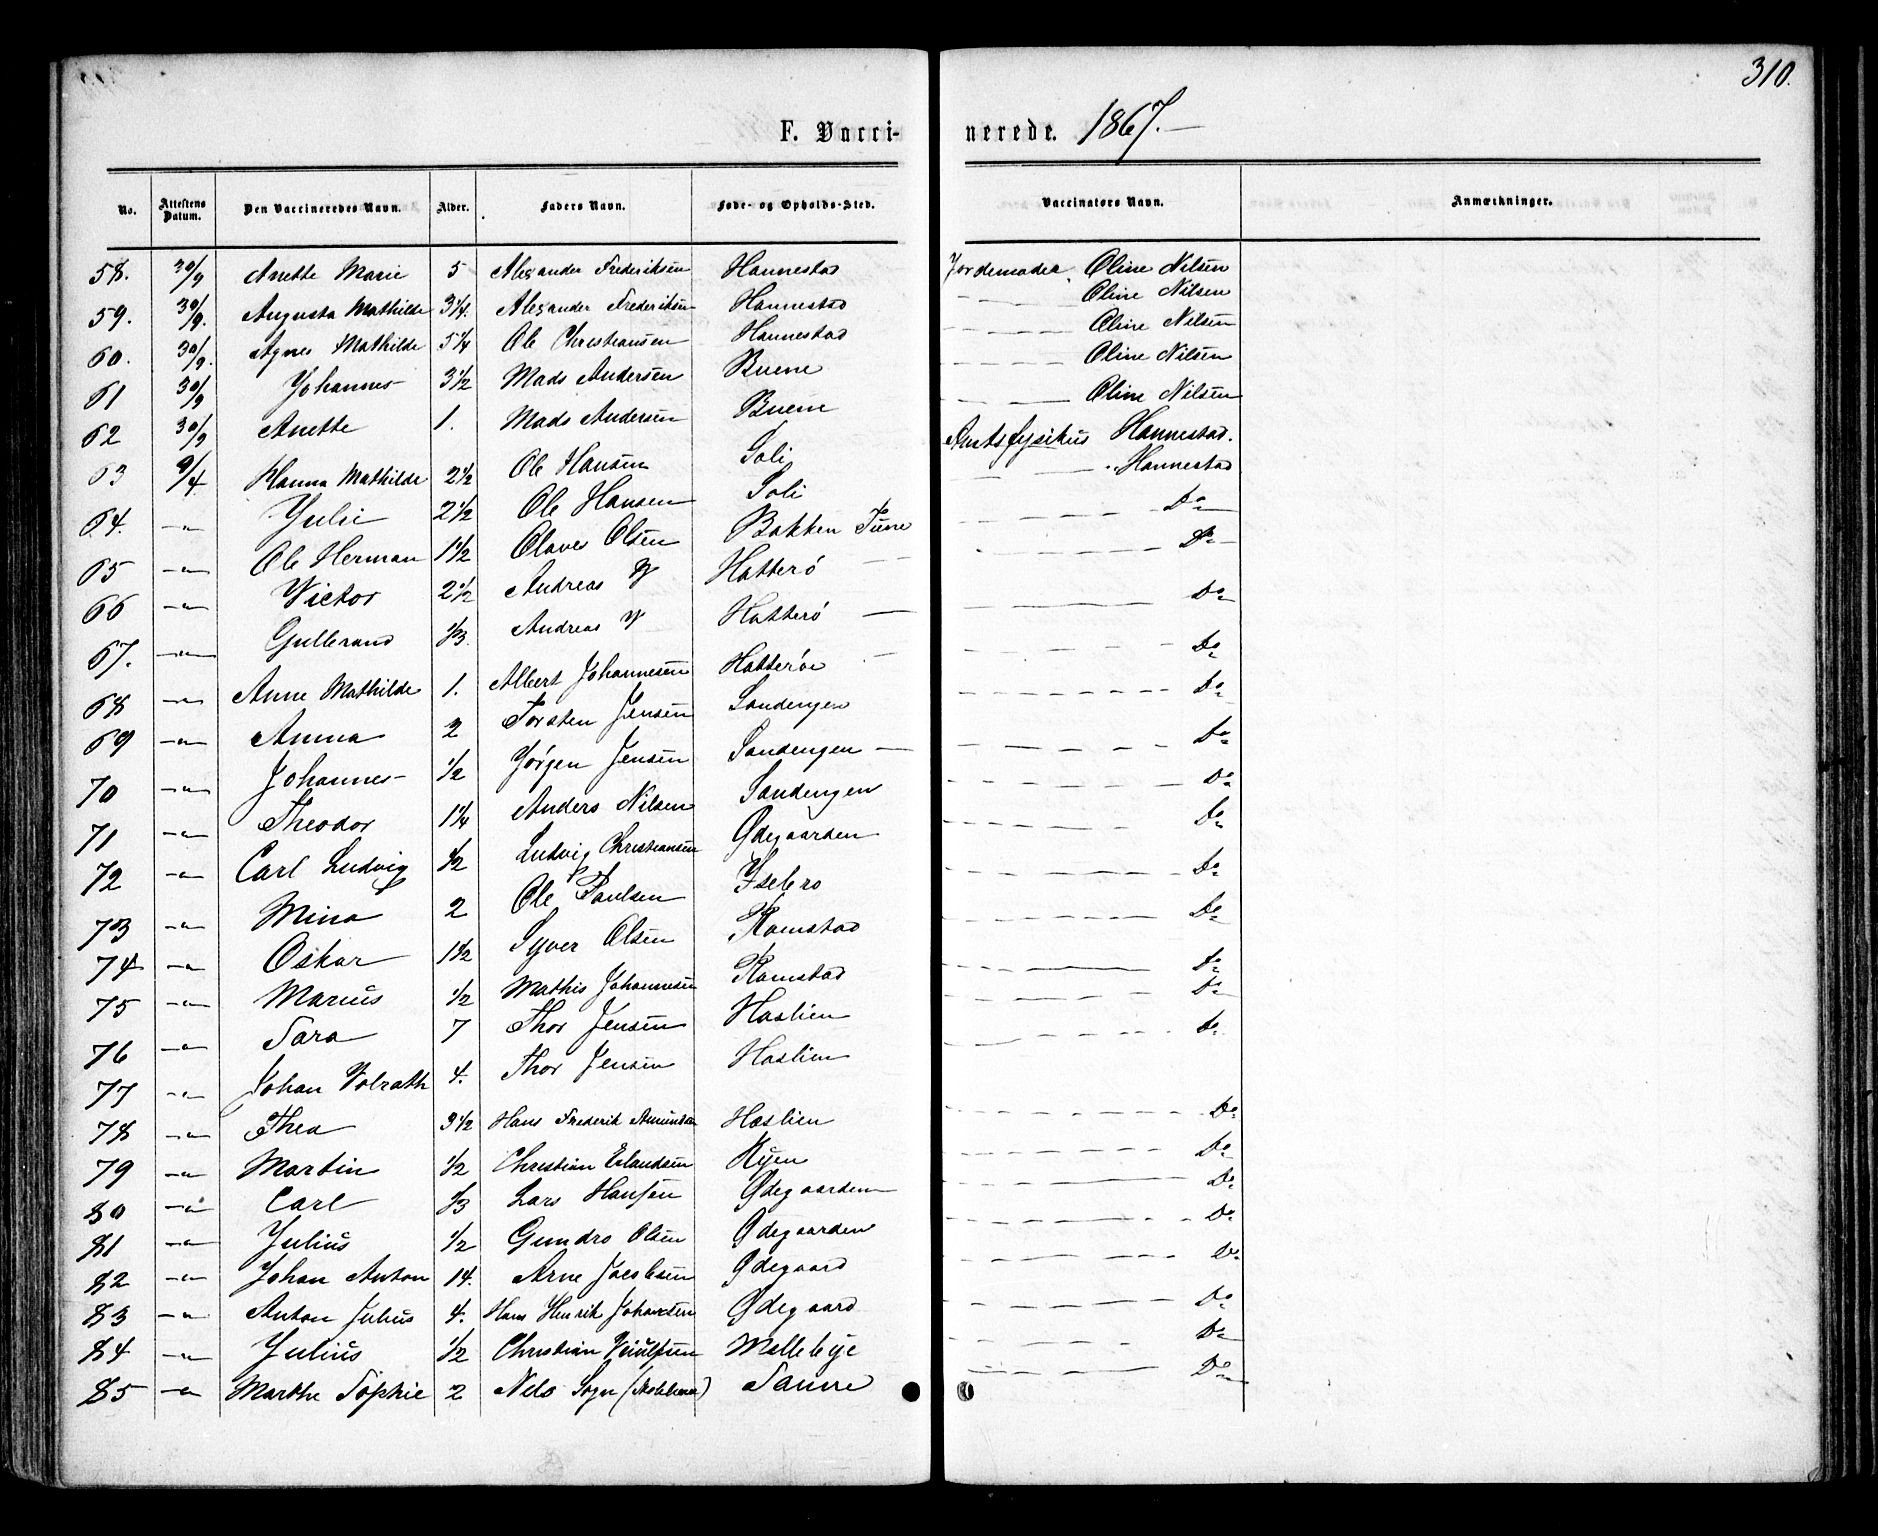 310.
F. Vacci-nerede. 1867.
No. Attestens Datum. Den Vaccineredes Navn. Alder. Faders Navn. Føde- og Opholds-Sted. Vaccinators Navn. Anmærkninger.
58. 30/9 Anette Marie 5 Alexander Frederiksen Hannestad Jordemoder Oline Nilsen
59. 30/9. Augusta Mathilde 3 1/4. Alexander Frederiksen Hannestad — Oline Nilsen
60. 30/9. Agnes Mathilde 5 1/4 Ole Christiansen Hannestad — Oline Nilsen
61 30/9 Johannes 3 1/2 Mads Andersen Buene — Oline Nilsen
62 30/9 Anette 1. Mads Andersen Buene — Oline Nilsen
63 9/4 Hanna Mathilde 2 1/2 Ole Hansen Soli Amtsfysikus Hannestad.
64. —"— Julie 2 1/2 Ole Hansen Soli — Hannestad
65 —"— Ole Herman 1 1/2 Olaves Olsen Bakken Tune — Do
66 —"— Victor 2 1/2 Andreas Hatterö — — Do
67. —"— Gullerand 1/3. Andreas Hatterö — — Do
68 —"— Anne Mathilde 1. Albert Johannesen Hatteröe — — Do
69 —"— Anna 2 Torsten Jensen Sandengen — Do
70 —"— Johannes 1/2 Jörgen Jensen Sandengen — — Do
71 —"— Theodor 1 1/4 Anders Nilsen Sandengen — Do
72 —"— Carl Ludvig 1/2 Ludvig Christiansen Ødegaarden — Do
73 —"— Mina 2 Ole Paulsen Isebro — Do
74 —"— Oskar 1 1/2 Syver Olsen Ramstad — Do
75 —"— Marius 1/2 Mathis Johannesen Ramstad — Do
76 —"— Sara 7 Thor Jensen Haslien — Do
77 —"— Johan Volrath 4. Thor Jensen Haslien — Do
78 —"— Thea 3 1/2 Hans Frederik Amundsen Haslien — Do
79 —"— Martin 1/2 Christian Erlandsen Ryen — Do
80 —"— Carl 1/3 Lars Hansen Ødegaarden — Do
81 —"— Julius 1/2 Gundro Olsen Ødegaarden — Do
82 —"— Johan Anton 14. Arne Jacobsen Ødegaard — Do
83 —"— Anton Julius 4. Hans Henrik Johansen Ødegaard — Do
84 —"— Julius 1/2 Christian Mellebye — Do
85 —"— Marthe Sophie 2 Nils Sogn Sanne — Do